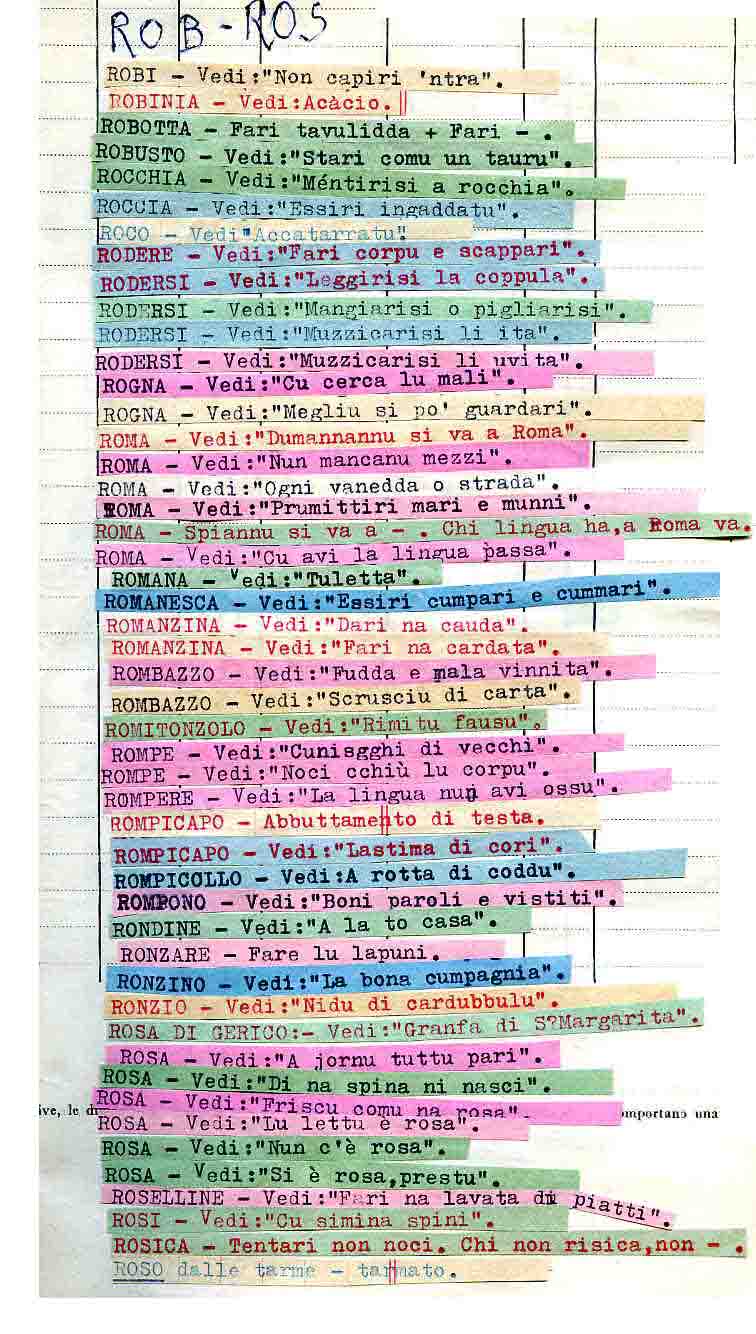 ROB-ROS
ROBI - Vedi:"Non capiri 'ntra".
ROBINIA - Vedi:Acàcio.
ROBOTTA - Fari tavulidda + Fari - .
ROBUSTO - Vedi:"Stari comu un tauru".
ROCCHIA - Vedi:"Méntirisi a rocchia".
ROCCIA - Vedi:"Essiri ingaddatu".
ROCO - Vedi"Accatarratu"
RODERE - Vedi:"Fari corpu e scappari".
RODERSI - Vedi:"Leggirisi la coppula".
RODERSI - Vedi:"Mangiarisi o pigliarisi".
RODERSI - Vedi:"Muzzicarisi li ita".
RODERSI - Vedi:"Muzzicarisi li uvita".
ROGNA - Vedi:"Cu cerca lu mali".
ROGNA - Vedi:"Megliu si po' guardari".
ROMA - Vedi:"Dumannannu si va a Roma".
ROMA - Vedi:"Nun mancanu mezzi".
ROMA - Vedi:"Ogni vanedda o strada".
ROMA - Vedi:"Prumittiri mari e munni".
ROMA - Spiannu si va a - . Chi lingua ha,a Roma va.
ROMA - Vedi:"Cu avi la lingua passa".
ROMANA - Vedi:"Tuletta".
ROMANESCA - Vedi:"Essiri cumpari e cummari".
ROMANZINA - Vedi:"Dari na cauda".
ROMANZINA - Vedi:"Fari na cardata".
ROMBAZZO - Vedi:"Fudda e mala vinnita".
ROMBAZZO - Vedi:"Scrusciu di carta".
ROMITONZOLO - Vedi:"Rimitu fausu".
ROMPE - Vedi:"Cunisgghi di vecchi".
ROMPE - Vedi:"Noci cchiù lu corpu".
ROMPERE - Vedi:"La lingua nun avi ossu".
ROMPICAPO - Abbuttamento di testa.
ROMPICAPO - Vedi:"Lastima di cori".
ROMPICOLLO - Vedi:A rotta di coddu".
ROMPONO - Vedi:"Boni paroli e vistiti".
RONDINE - Vedi:"A la to casa".
RONZARE - Fare lu lapuni.
RONZINO - Vedi:"La bona cumpagnia".
RONZIO - Vedi:"Nidu di cardubbulu".
ROSA DI GERICO:- Vedi:"Granfa di S?Margarita".
ROSA - Vedi:"A jornu tuttu pari".
ROSA - Vedi:"Di na spina ni nasci".
ROSA - Vedi:"Friscu comu na rosa".
ive, le di mportano una
ROSA - Vedi:"Lu lettu è rosa".
ROSA - Vedi:"Nun c'è rosa".
ROSA - Vedi:"Si è rosa,prestu".
ROSELLINE - Vedi:"Fari na lavata di piatti".
ROSI - Vedi:"Cu simina spini".
ROSICA - Tentari non noci. Chi non risica,non - .
ROSO dalle tarme - tarmato.